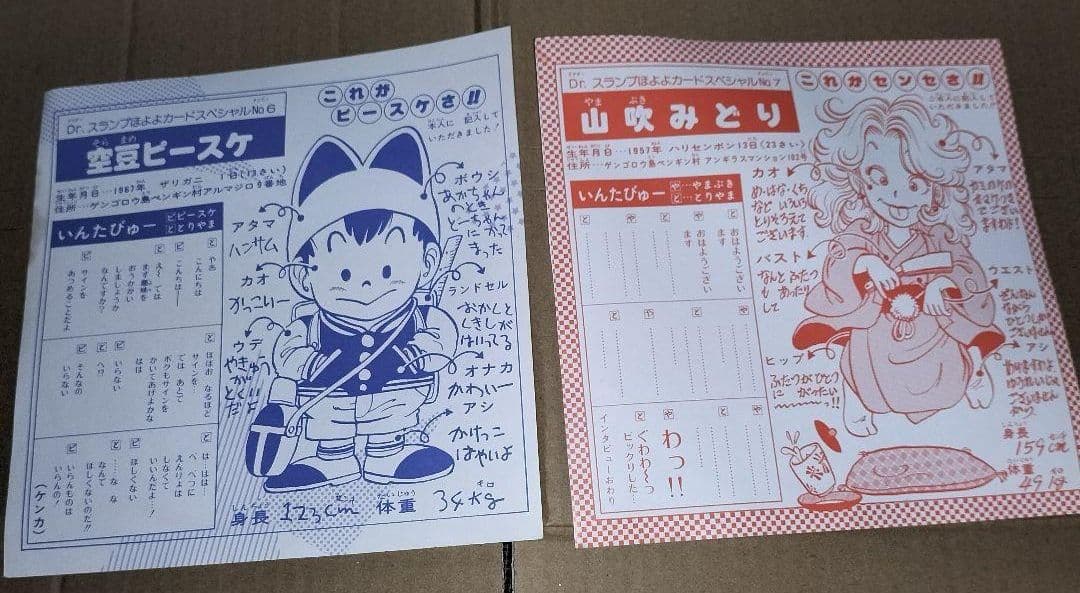 Dr.スランプほよよカードスペシャルNo6
これがピースケさ!!
本人に記入して
いただきました!
そらまめ
空豆ピースケ
生年月日…1967年 ザリガニ 1日(13さい)
住所…ゲンゴロウ島ペンギン村アルマジロ9番地
いんたびゅー
ピピースケ
ととりやま
と やあ
こんにちは
ピ こんちはー
と えー では
まず趣味を
おうかがい
しましょうか
なんですか?
ピ サインを
あつめることだよ
と ほほお なるほど
サインを…
では あとで
ボクもサインを
かいてあげよかな
ははは
ピ いらない
と へ!?
ピ そんなの
いらない
と は ははは…
べ べつに
えんりょは
しなくて
いいんだよ…!
ピ ほしくない
と …… な な
なんで
ほしくないのだ!!
ピ いらんものは
いらんの!
(ケンカ)
アタマ
ハンサム
カオ
かっこいー
ウデ
やきゅー
がとくい
だよ
ボウシ
あかちゃん
のとき
とーちゃんに
かって
もらった
ランドセル
おかしと
しきしが
はいってる
オナカ
かわいー
アシ
かけっこ
はやいよ
しんちょう
身長 123cm
たいじゅう
体重 34kg
キロ
Dr.スランプほよよカードスペシャルNo7
これがセンセさ!!
ご本人に記入して
いただきました!!
やま ぶき
山吹みどり
生年月日…1957年 ハリセンボン13日(23さい)
住所…ゲンゴロウ島ペンギン村 アンギラスマンション102号
いんたびゅー
や…やまぶき
と…とりやま
と おはようござい
ます
や おはようござい
ます
と
や
と
と
や
と
や
と
や わっ!!
と ぐわわ〜っ
ビックリした…
インタビューおわり
カオ
め・はな・くち
など いろいろ
とりそろえて
ございます
バスト
なんと ふたつ
も あったり
して
ヒップ
ふたつがひとつ
に がったい
〜〜〜っ!!
アタマ
ウエスト
ざんねん
ながら
ひとつしか
ございません
アシ
ありますわよ
ゆうれいじゃ
ございません
もの
身長
159cm
体重
49kg